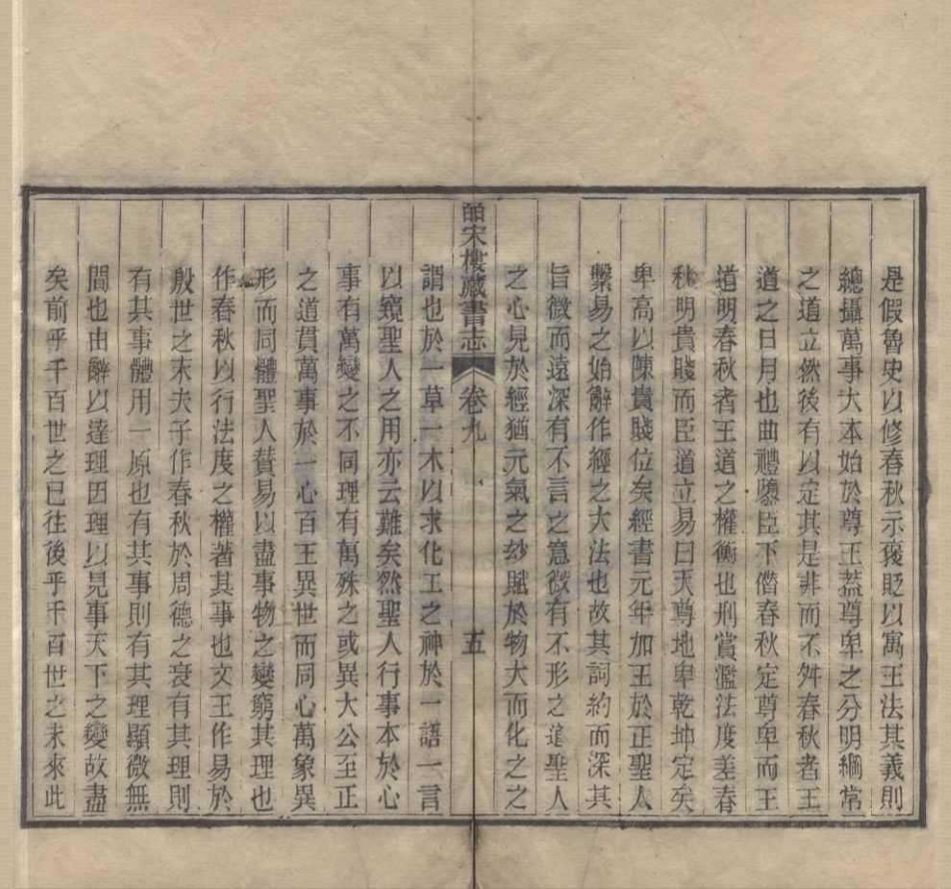 是假魯史以修春秋示褒貶以寓王法其義則
總攝萬事大本始於尊王蓋尊卑之分明綱常
之道立然後有以定其是非而不舛春秋者王
道之日月也曲禮隳臣下僭春秋定尊卑而王
道明春秋者王道之權衡也刑賞濫法度差春
秋明貴賤而臣道立易曰天尊地卑乾坤定矣
卑高以陳貴賤位矣經書元年加王於正聖人
繫易之始辭作經之大法也故其詞約而深其
旨微而遠深有不言之意微有不形之道聖人
之心見於經猶元氣之玅賦於物大而化之之
皕宋樓藏書志 卷九 五
謂也於一草一木以求化工之神於一語一言
以窺聖人之用亦云難矣然聖人行事本於心
事有萬變之不同理有萬殊之或異大公至正
之道貫萬事於一心百王異世而同心萬象異
形而同體聖人贊易以盡事物之變窮其理也
作春秋以行法度之權著其事也文王作易於
殷世之末夫子作春秋於周德之衰有其理則
有其事體用一原也有其事則有其理顯微無
間也由辭以達理因理以見事天下之變故盡
矣前乎千百世之已往後乎千百世之未來此